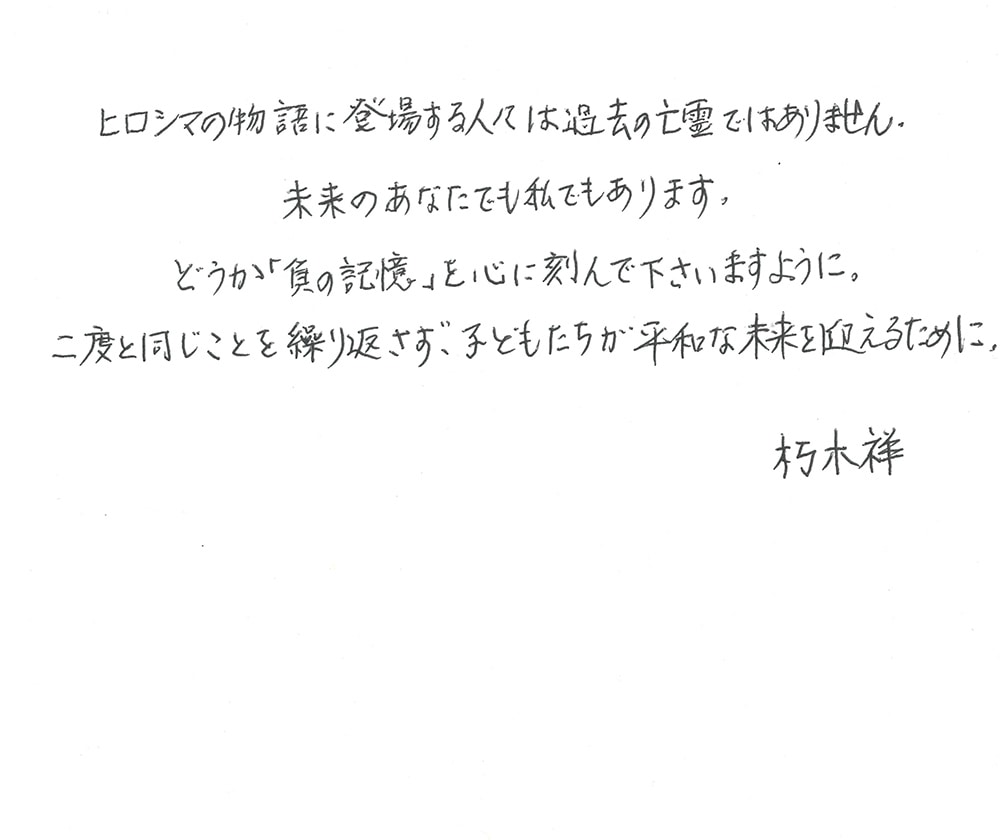 ヒロシマの物語に登場する人々は過去の亡霊ではありません。
未来のあなたでも私でもあります。
どうか「負の記憶」を心に刻んで下さいますように。
二度と同じことを繰り返さず、子どもたちが平和な未来を迎えるために。
朽木祥